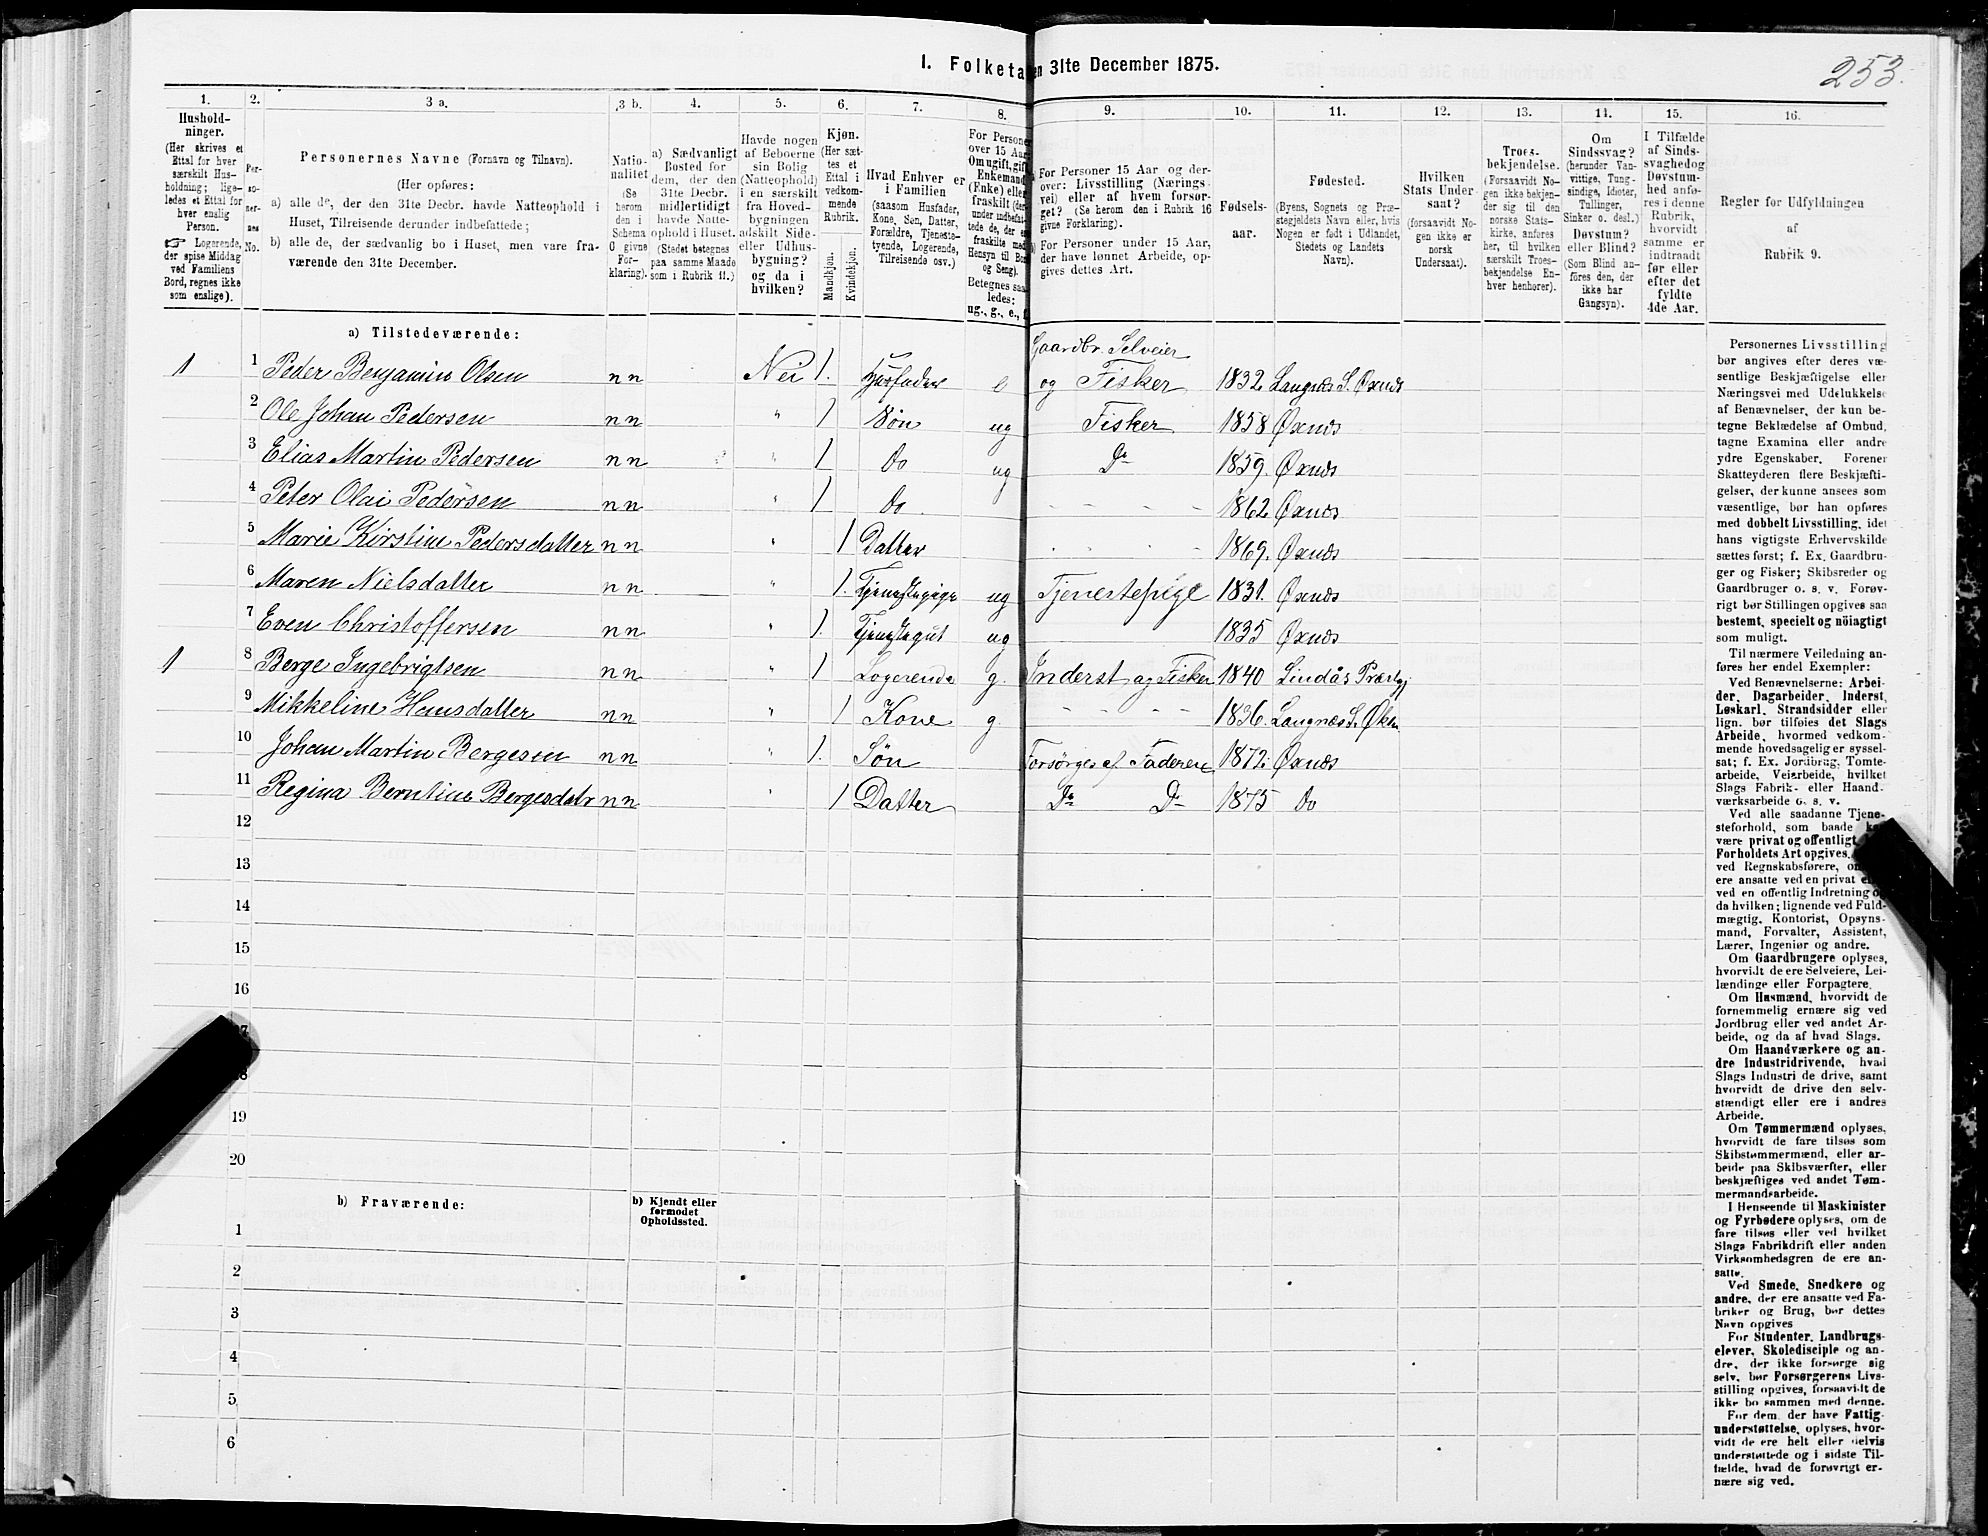 253.
1. Folketa en 31te December 1875.
1. 2. 3 a. 3 b. 4. 5. 6. 7. 8. 9. 10. 11. 12. 13. 14. 15. 16.
Hushold-
ninger.
(Her skrives et
Ettal for hver
særskilt Hus-
holdning; lige-
ledes et Ettal for
hver enslig
Person.
☞ Logerende,
der spise Middag
ved Familiens
Bord, regnes ikke
som enslige).
Per-
so-
ner-
nes
No.
Personernes Navne (Fornavn og Tilnavn).
(Her opføres:
a) alle de, der den 31te Decbr. havde Natteophold i
Huset, Tilreisende derunder indbefattede;
b) alle de, der sædvanlig bo i Huset, men vare fra-
værende den 31te December.
Natio-
nalitet
(Se
herom
den i
Schema
O givne
For-
klaring).
a) Sædvanligt
Bosted for
dem, der den
31te Decbr.
midlertidigt
havde Natte-
ophold i Huset.
(Stedet betegnes
paa samme Maade
som i Rubrik 11.)
Havde nogen
af Beboerne
sin Bolig
(Natteophold)
i en særskilt
fra Hoved-
bygningen
adskilt Side-
eller Udhus-
bygning?
og da i
hvilken?
Kjøn.
(Her sæt-
tes et
Ettal i
vedkom-
mende
Rubrik.
Mandkjøn.
Kvindekjøn.
Hvad Enhver er
i Familien
(saasom Husfader,
Kone, Søn, Datter,
Forældre, Tjeneste-
tyende, Logerende,
Tilreisende osv.)
For Persone
over 15 Aar
Om ugift, gift
Enkemand
(Enke) eller
fraskilt (der
under indbefat-
tede de, der e
fraskilte med
Hensyn til Bo
og Seng).
Betegnes saa
ledes:
ug., g., e., f
For Personer 15 Aar og der-
over: Livsstilling (Nærings-
vei) eller af hvem forsør-
get? (Se herom den i Rubrik 16
givne Forklaring).
For Personer under 15 Aar,
der have lønnet Arbeide, op-
gives dettes Art.
Fødsels-
aar.
Fødested.
(Byens, Sognets og Præ-
stegjeldets Navn eller, hvis
Nogen er født i Udlandet,
Stedets og Landets
Navn).
Hvilken
Stats Under-
saat?
(forsaavidt No-
gen ikke er
norsk
Undersaat).
Troes-
bekjendelse.
(Forsaavidt No-
gen ikke bekjen-
der sig til den
norske Stats-
kirke, anføres
her, til hvilken
særskilt Troes-
bekjendelse En-
hver henhører).
Om
Sindssvag?
(herunder Van-
vittige, Tung-
sindige, Idioter,
Tullinger,
Sinker o. desl.)
Døvstum?
eller Blind?
(Som Blind an-
føres den, der
ikke har
Gangsyn).
I Tilfælde
af Sinds-
svaghedog
Døvstum-
hed anfø-
res i denne
Rubrik,
hvorvidt
samme er
indtraadt
før eller
efter det
fyldte
4de Aar.
Regler for Udfyldningen
af
Rubrik 9.
a) Tilstedeværende:
Gaardbr. Selveier
1 1 Peder Benjamin Olsen nn Nei 1. Husfader e og Fisker 1832. Langnes S. Øxnes
2 Ole Johan Pedersen nn " 1 Søn ug Fisker 1858 Øxnes
3 Elias Martin Pedersen nn " 1 do ug Do 1859. Øxnes
4 Peter Olai Pedersen nn " 1 do. - - - - 1862. Øxnes
5 Marie Kirstine Pedersdatter nn " 1 Datter - - - - 1869. Øxnes
6 Maren Nielsdatter nn " 1. Tjenestepige ug Tjenestepige 1831. Øxnes
7 Even Christoffersen nn " 1. Tjenestegut ug 1835 Øxnes
1 8 Berge Ingebrigtsen nn " 1 Logerende g. Inderst og Fisker 1840 Lindås Præstgj
9 Mikkeline Hansdatter nn " / Kone g. - - - - 1836. Langnes S. Øxn
10 Johan Martin Bergesen nn " 1. Søn Forsørges af Faderen 1872. Øxnes
11 Regina Berntine Bergesdatr nn " 1 Datter Do Do 1875 do
12
13
14
15
16
19
20
b) Fraværende:
b) Kjendt eller
formodet
Opholdssted.
1
2
3
4
5
6
Personernes Livsstilling
bør angives efter deres væ-
sentlige Beskjæftigelse eller
Næringsvei med Udelukkelse
af Benævnelser, der kun be-
tegne Beklædelse af Ombud,
tagne Examina eller andre
ydre Egenskaber. Forener
Skatteyderen flere Beskjæfti-
gelser, der kunne ansees som
væsentlige, bør han opføres
med dobbelt Livsstilling, idet
hans vigtigste Erhvervskilde
sættes først; f. Ex. Gaardbru-
ger og Fisker; Skibsreder og
Gaardbruger o. s. v. Forøv-
rigt bør Stillingen opgives saa
bestemt, specielt og nöiagtigt
som muligt.
Til nærmere Veiledning an-
føres her endel Exempler:
Ved Benævnelserne: Arbei-
der, Dagarbeider, Inderst,
Løskarl, Strandsidder eller
lign. bør tilføies det Slags
Arbeide, hvormed vedkom-
mende hovedsagelig er syssel-
sat; f. Ex. Jordbrug, Tomte-
arbeide, Veiarbeide, hvilket
Slags Fabrik- eller Haand-
værksarbeide o. s. v.
Ved alle saadanne Tjene-
steforhold, som baade
være privat og offentligt,
Forholdets Art opgives,
ved Regnskabsførere,
ere ansatte ved en privat
ved en offentlig Indretning
da hvilken; lignende ved Fuld-
mægtig, Kontorist, Opsyns-
mand, Forvalter, Assistent,
Lærer, Ingeniør og andre.
Om Gaardbrugere oplyses,
hvorvidt de ere Selveiere, Lei-
lændinge eller Forpagtere.
Om Husmænd, hvorvidt de
fornemmelig ernære sig ved
Jordbrug eller ved andet Ar-
beide, og da af hvad Slags.
Om Haandværkere og an-
dre Industridrivende, hvad
Slags Industri de drive, samt
hvorvidt de drive den selv-
stændigt eller ere i andres
Arbeide.
Om Tømmermænd oplyses,
hvorvidt de fare tilsøs som
Skibstømmermænd, eller ar-
beide paa Skibsværfter, eller
beskjæftiges ved andet Tøm-
mermandsarbeide.
I Henseende til Maskinister
og Fyrbødere oplyses, om de
fare tilsøs eller ved hvilket
Slags Fabrikdrift eller anden
Virksomhedsgren de ere an-
satte.
Ved Smede, Snedkere og
andre, der ere ansatte ved Fa-
briker og Brug, bør dettes
Navn opgives
For Studenter, Landbrugs-
elever, Skoledisciple og an-
dre, der ikke forsørge sig
selv, bør Forsørgerens Livs-
stilling opgives, forsaavidt de
ikke bo sammen med denne.
For dem, der have Fattig-
understøttelse, oplyses, hvor-
vidt de ere helt eller delvis
understøttede og i sidste Til-
fælde, hvad de forøvrigt er-
nære sig ved.